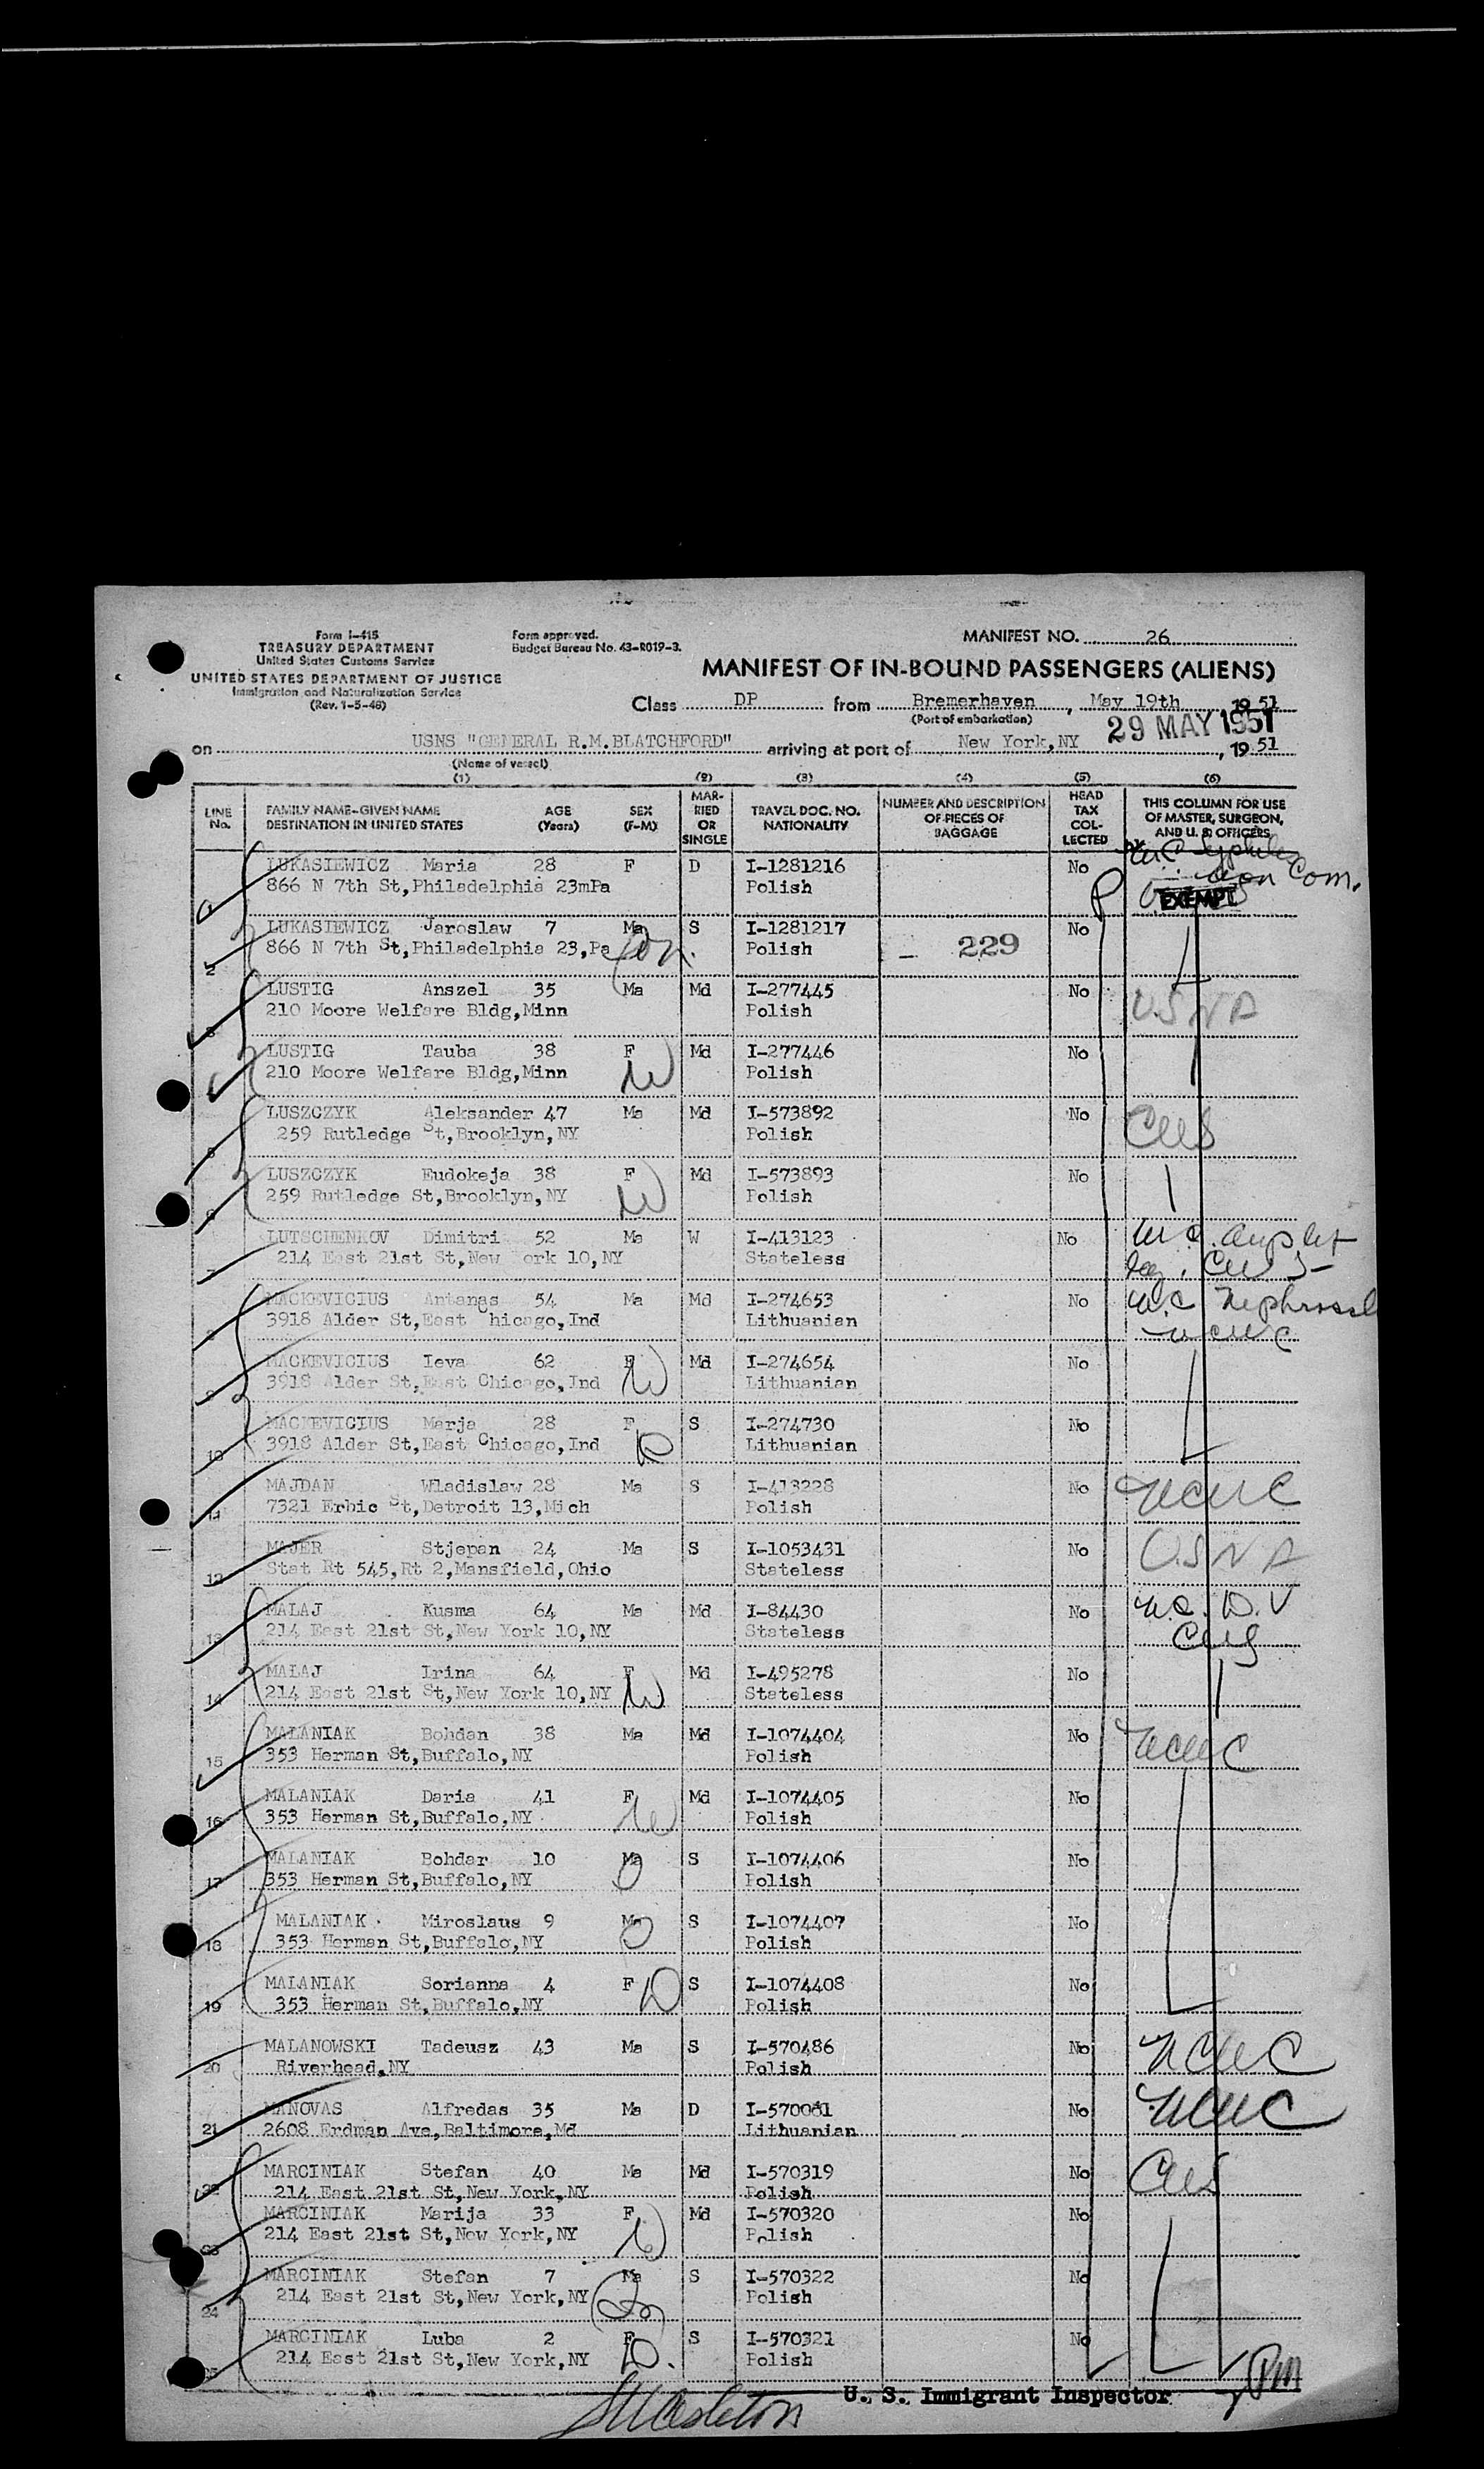 Form I-415
TREASURY DEPARTMENT
United States Customs Service
UNITED STATES DEPARTMENT OF JUSTICE
Immigration and Naturalization Service
(Rev. 1-5-48)
Form approved.
Budget Bureau No. 43-R019-3.
MANIFEST NO. 26
MANIFEST OF IN-BOUND PASSENGERS (ALIENS)
Class DP from Bremerhaven, May 19th 1951
(Port of embarkation)
29 MAY 1951
on USNS "GENERAL R.M.BLATCHFORD" arriving at port of New York,NY, 19 51
(Name of vessel)
(1) (2) (3) (4) (5) (6)
LINE No. FAMILY NAME-GIVEN NAME DESTINATION IN UNITED STATES AGE (Years) SEX (F-M) MARRIED OR SINGLE TRAVEL DOC. NO. NATIONALITY NUMBER AND DESCRIPTION OF PIECES OF BAGGAGE HEAD TAX COLLECTED THIS COLUMN FOR USE OF MASTER, SURGEON, AND U. S. OFFICERS
LUKASIEWICZ Maria 28 F D I-1281216 No
1 866 N 7th St,Philadelphia 23mPa Polish Com. EXEMPT
LUKASIEWICZ Jaroslaw 7 Ma S I-1281217 No
2 866 N 7th St,Philadelphia 23,Pa Polish 229
LUSTIG Anszel 35 Ma Md I-277445 No
3 210 Moore Welfare Bldg,Minn Polish USNA
LUSTIG Tauba 38 F Md I-277446 No
210 Moore Welfare Bldg,Minn W Polish
LUSZCZYK Aleksander 47 Ma Md I-573892 No
5 259 Rutledge St,Brooklyn,NY Polish CWS
LUSZCZYK Eudokeja 38 F Md I-573893 No
6 259 Rutledge St,Brooklyn,NY W Polish
LUTSCHENKOV Dimitri 52 Ma W I-413123 No
7 214 East 21st St,New ork 10,NY Stateless leg. CWS
MACKEVICIUS Antanas 54 Ma Md I-274653 No
8 3918 Alder St,East Chicago,Ind Lithuanian NCWC
MACKEVICIUS Ieva 62 F Md I-274654 No
9 3918 Alder St,East Chicago,Ind W Lithuanian
MACKEVICIUS Marja 28 F S I-274730 No
10 3918 Alder St,East Chicago,Ind D Lithuanian
MAJDAN Wladislaw 28 Ma S I-413228 No NCWC
11 7321 Erbic St,Detroit 13,Mich Polish
MAJER Stjepan 24 Ma S I-1053431 No USNA
12 Stat Rt 545,Rt 2,Mansfield,Ohio Stateless
MALAJ Kusma 64 Ma Md I-84430 No M.C. D.V
13 214 East 21st St,New York 10,NY Stateless CWS
MALAJ Irina 64 F Md I-495278 No
14 214 East 21st St,New York 10,NY W Stateless
MALANIAK Bohdan 38 Ma Md I-1074404 No
15 353 Herman St,Buffalo,NY Polish NCWC
MALANIAK Daria 41 F Md I-1074405 No
16 353 Herman St,Buffalo,NY W Polish
MALANIAK Bohdar 10 Ma S I-1074406 No
17 353 Herman St,Buffalo,NY Polish
MALANIAK Miroslaus 9 Ma S I-1074407 No
18 353 Herman St,Buffalo,NY Polish
MALANIAK Sorianna 4 F D S I-1074408 No
19 353 Herman St,Buffalo,NY Polish
MALANOWSKI Tadeusz 43 Ma S I-570486 No NCWC
20 Riverhead,NY Polish
MANOVAS Alfredas 35 Ma D I-570001 No NCWC
21 2608 Erdman Ave,Baltimore,Md Lithuanian
MARCINIAK Stefan 40 Ma Md I-570319 No CWS
22 214 East 21st St,New York,NY Polish
MARCINIAK Marija 33 F Md I-570320 No
23 214 East 21st St,New York,NY W Polish
MARCINIAK Stefan 7 Ma S I-570322 No
24 214 East 21st St,New York,NY Son Polish
MARCINIAK Luba 2 F S I-570321 No
25 214 East 21st St,New York,NY D. Polish
U. S. Immigrant Inspector